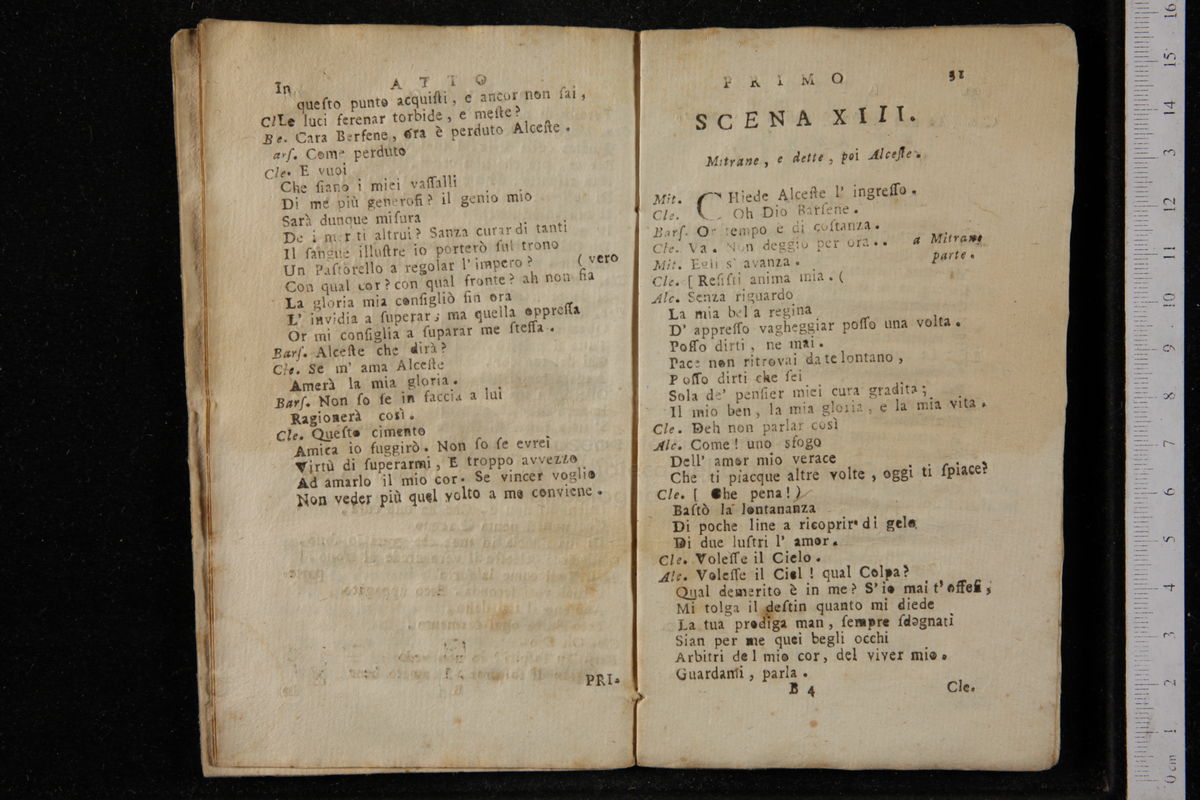 In ATTO
questo punto acquisti, e ancor non sai,
Cl Le luci serenar torbide, e meste?
Be. Cara Barsene, ora è perduto Alceste.
ars. Come perduto
Cle. E vuoi
Che siano i miei vassalli
Di me più generosi? il genio mio
Sarà dunque misura
De i merti altrui? Sanza curar di tanti
Il sangue illustre io porterò sul trono
Un Pastorello a regolar l'impero? (vero
Con qual cor? con qual fronte? ah non sia
La gloria mia consigliò sin ora
L' invidia a superar; ma quella oppressa
Or mi consiglia a suparar me stessa.
Bars. Alceste che dirà?
Cle. Se m' ama Alceste
Amerà la mia gloria.
Bars. Non so se in faccia a lui
Ragionerà così.
Cle. Questo cimento
Amica io fuggirò. Non so se evrei
Virtù di superarmi, E troppo avvezzo
Ad amarlo il mio cor. Se vincer voglio
Non veder più quel volto a me conviene.
PRI.
PRIMO 31
SCENA XIII.
Mitrane, e dette, poi Alceste.
Mit. CHiede Alceste l' ingresso.
Cle. Oh Dio Barsene.
Bars. Or tempo e di costanza.
Cle. Va. Non deggio per ora.. a Mitrane
Mit. Egli s' avanza. parte.
Cle. [ Resisti anima mia. (
Alc. Senza riguardo
La mia bel a regina
D' appresso vagheggiar posso una volta.
Posso dirti, ne mai.
Pace non ritrovai da te lontano,
Posso dirti che sei
Sola de' pensier miei cura gradita;
Il mio ben, la mia gloria, e la mia vita.
Cle. Deh non parlar così
Alc. Come! uno sfogo
Dell' amor mio verace
Che ti piacque altre volte, oggi ti spiace?
Cle. [ Che pena!)
Bastò la lontananza
Di poche line a ricoprir di gelo
Di due lustri l' amor.
Cle. Volesse il Cielo.
Alc. Volesse il Ciel! qual Colpa?
Qual demerito è in me? S'io mai t' offesi,
Mi tolga il destin quanto mi diede
La tua prodiga man, sempre sdegnati
Sian per me quei begli occhi
Arbitri del mio cor, del viver mio.
Guardami, parla.
B 4 Cle.
0 cm 1 2 3 4 5 6 7 8 9 10 11 12 3 14 15 16